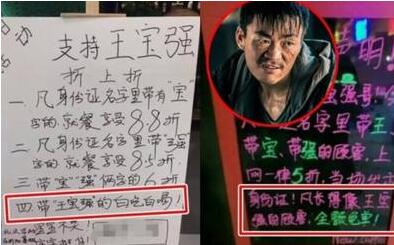 支持王宝强
折上折
一、凡身份证名字里带有"宝"
字的,就餐享受8.8折
二、凡身份证名字里带"强"
字的,就餐享受8.5折
三、带"宝""强"俩字的6折
四、带"王宝强"的白吃白喝!
声明!
强哥,
名字里带王、
带宝、带强的顾客,上
网一律5折,
身份证!凡长得像王宝
强的顾客,全额免单!